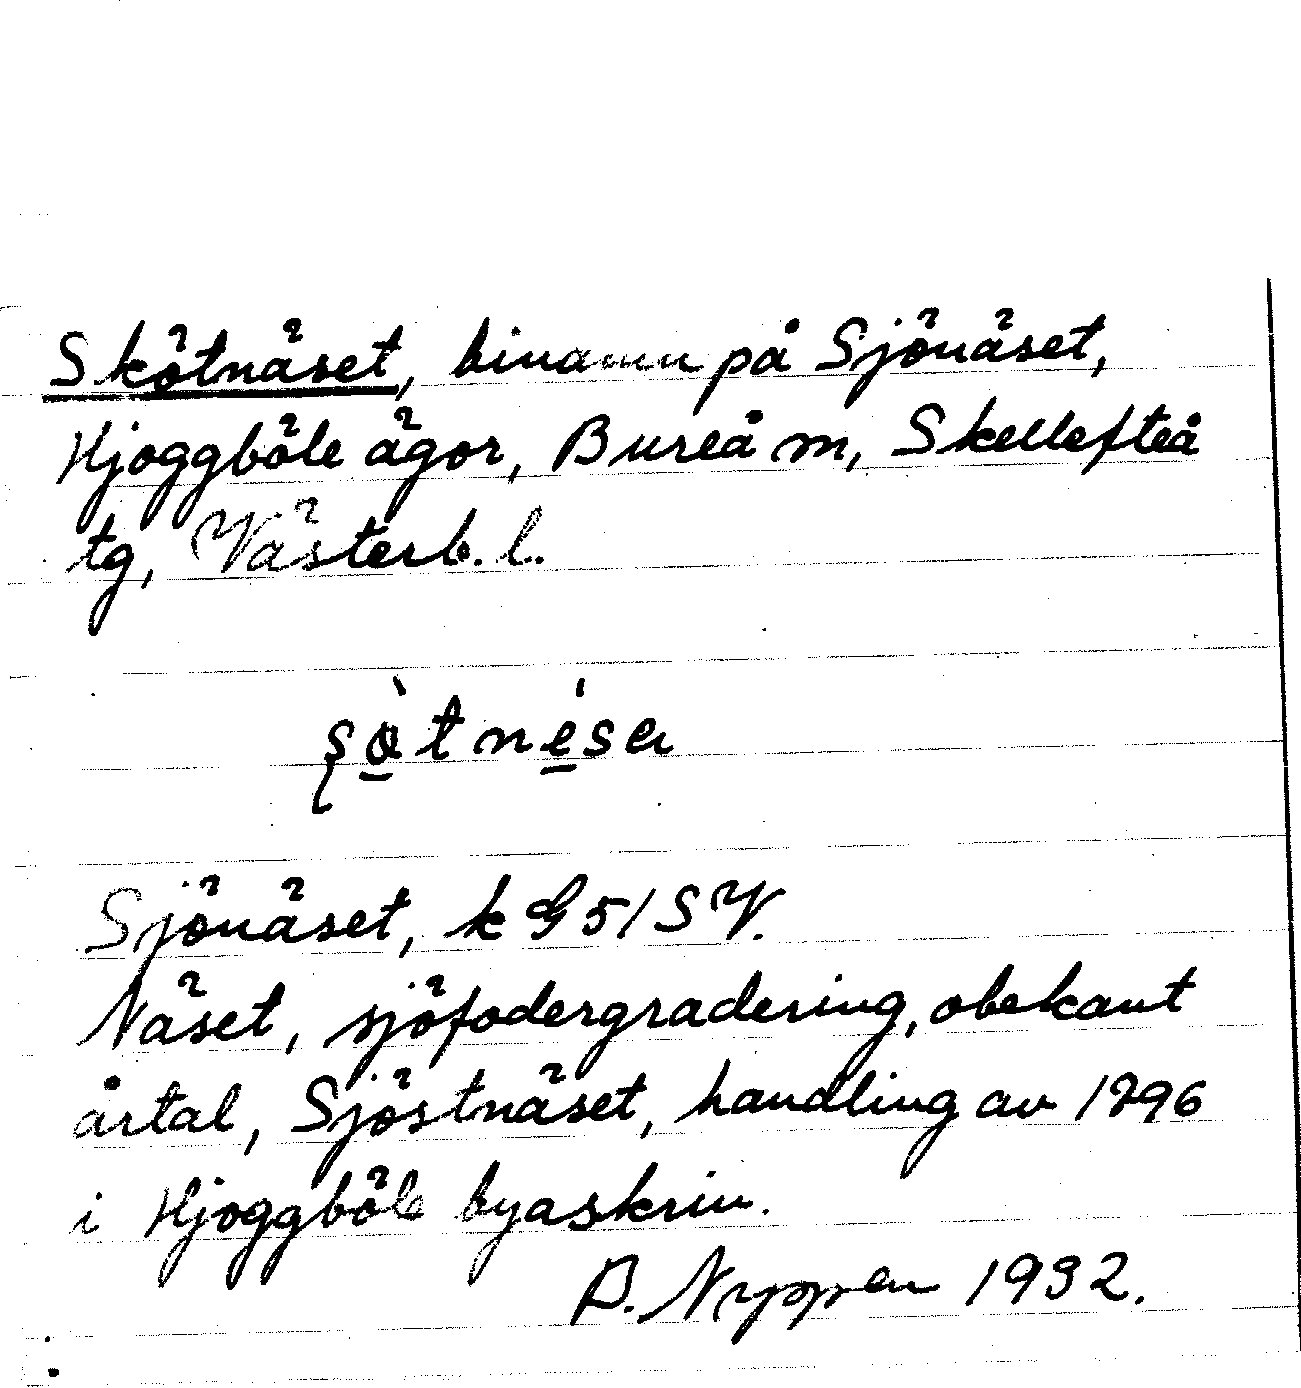 Skötnäset, binamn på Sjönäset,
Hjoggböle ägor, Bureå m, Skellefteå
tg, Västerb. l.
Sjönäset, k G 51 SV.
Näset, sjöfodergradering, obekant
årtal, Sjöstnäset, handling av 1896
i Hjoggböle byaskrin.
B. Nyppen 1932.